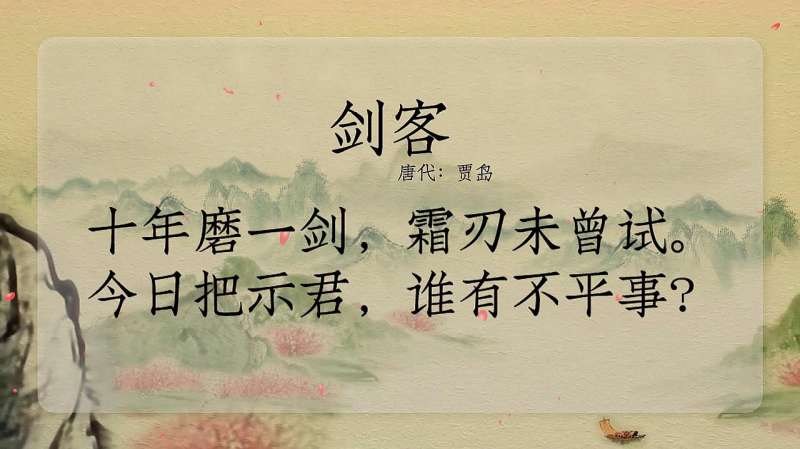 剑客
唐代：贾岛
十年磨一剑，霜刃未曾试。
今日把示君，谁有不平事？